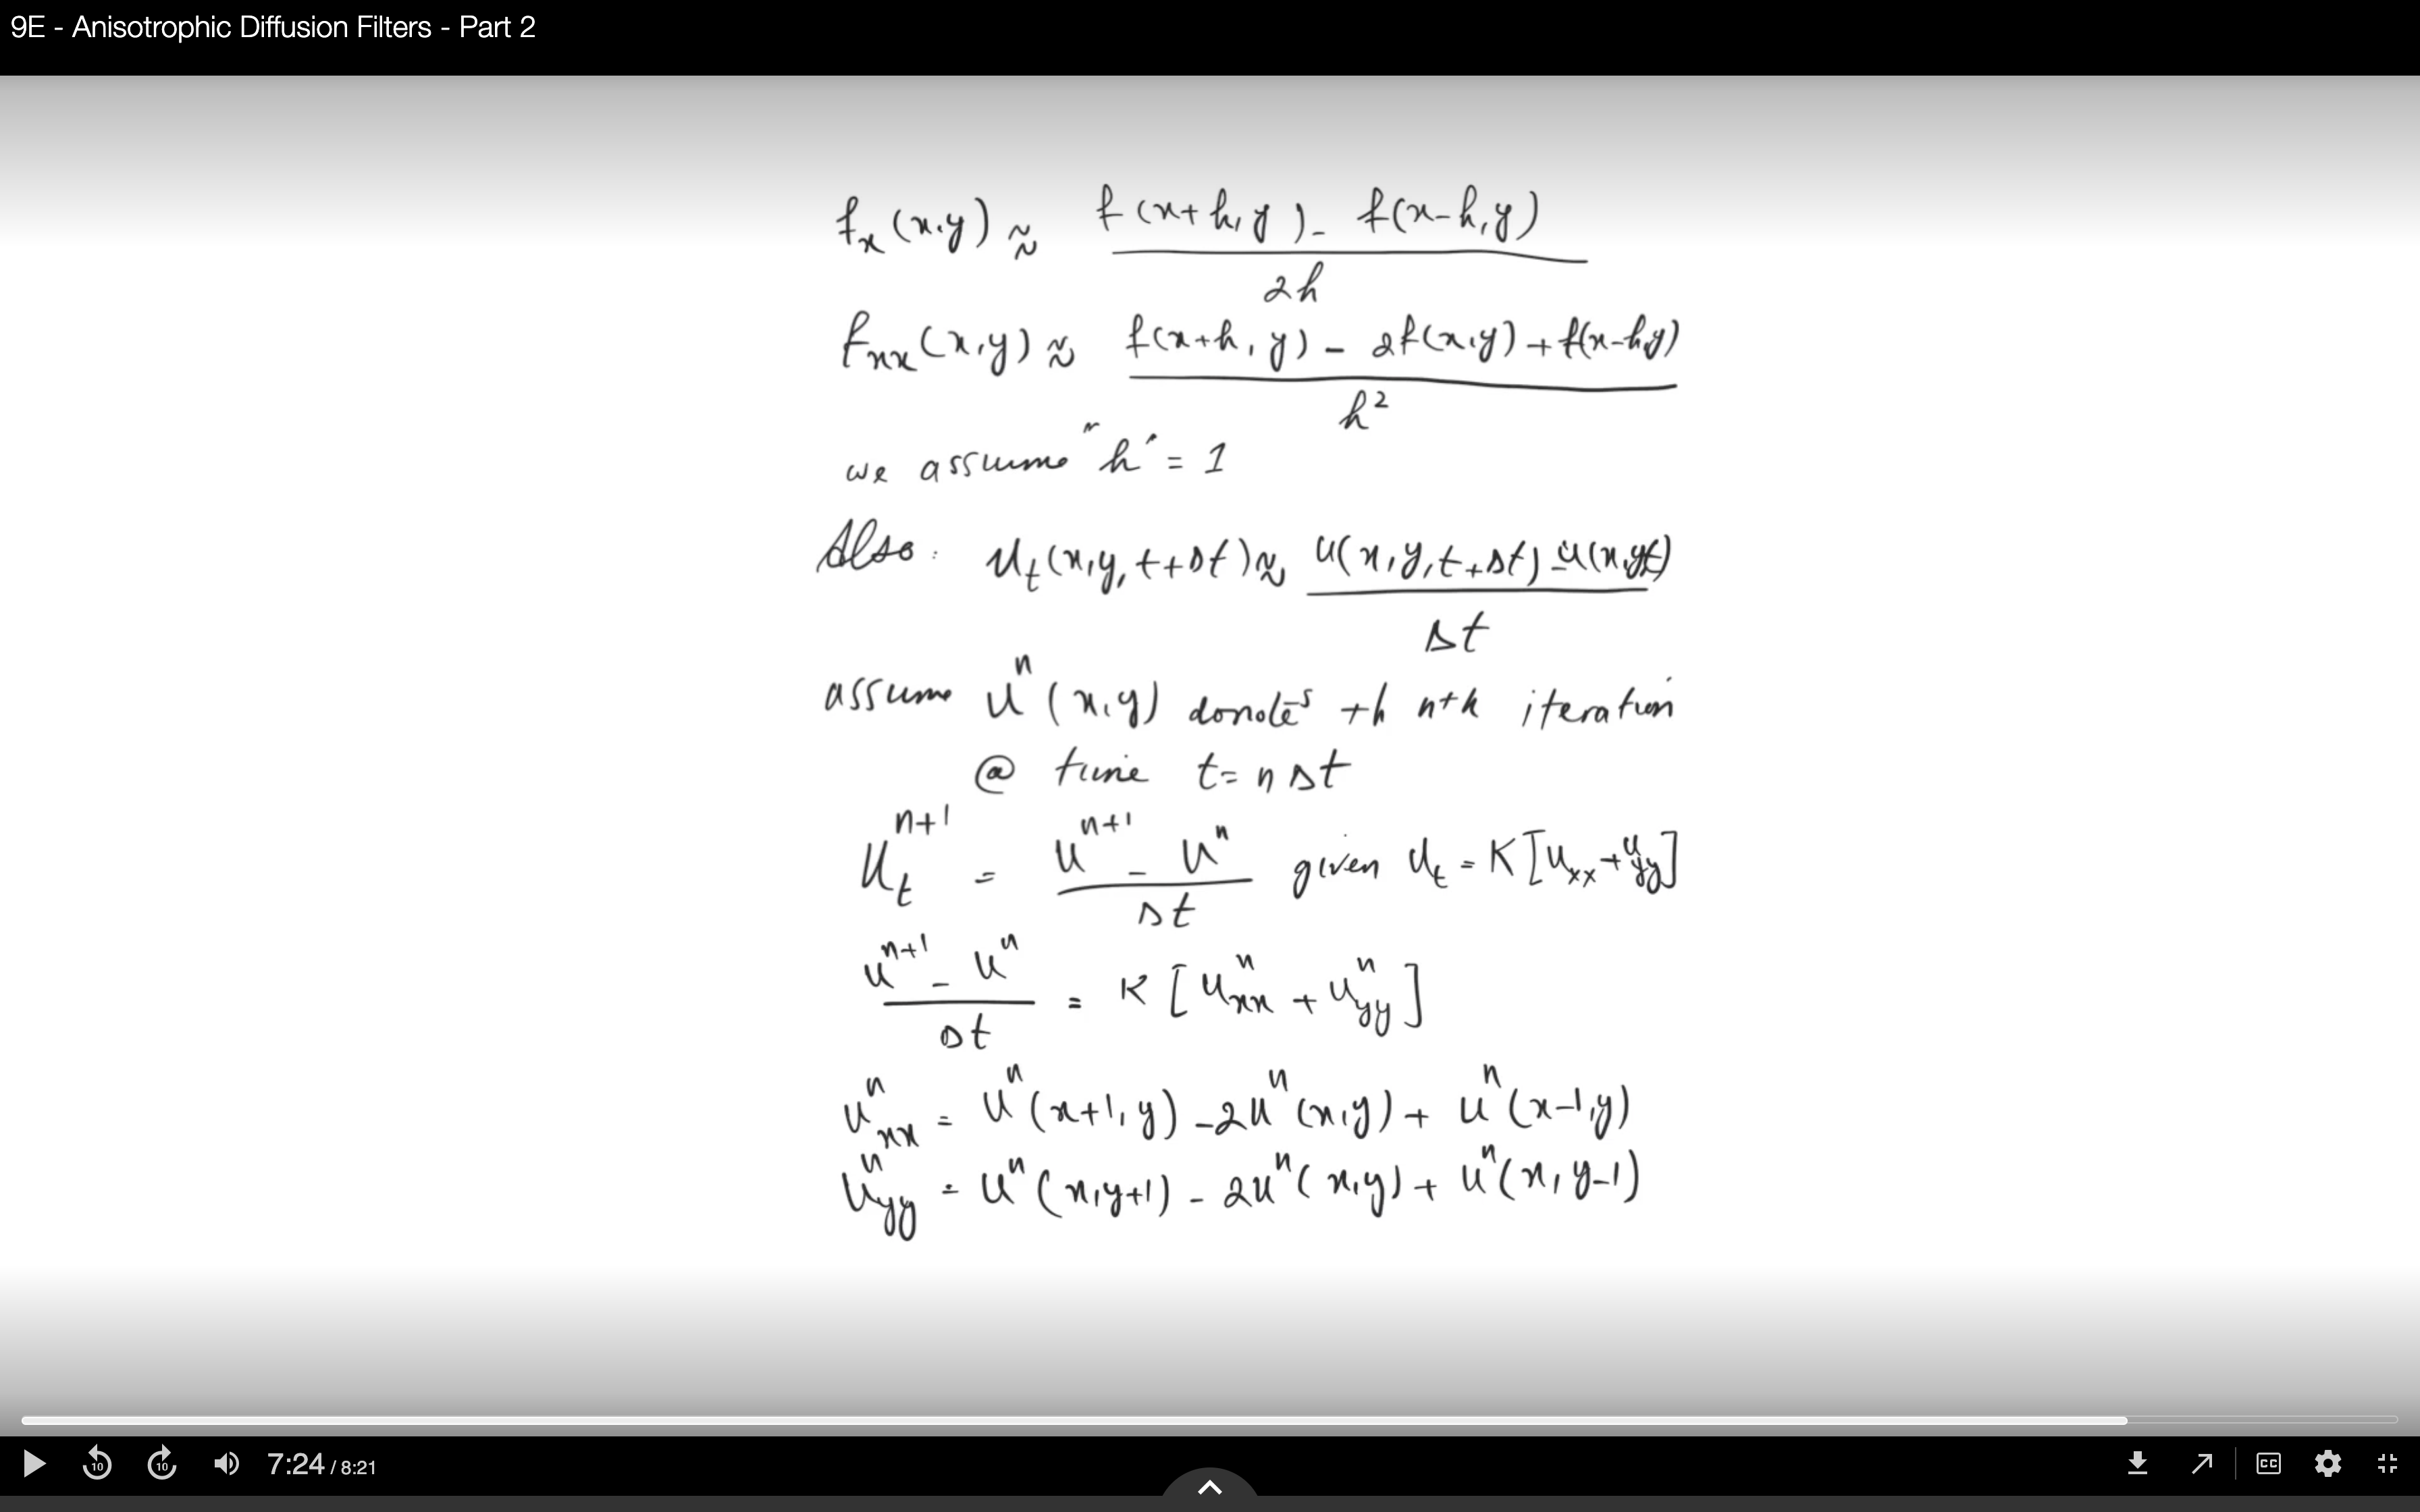 9E - Anisotrophic Diffusion Filters - Part 2
f_x(x,y) ≈ (f(x+h,y) - f(x-h,y)) / 2h
f_xx(x,y) ≈ (f(x+h,y) - 2f(x,y) + f(x-h,y)) / h²
we assume "h" = 1
Also: u_t(x,y,t+Δt) ≈ (u(x,y,t+Δt) - u(x,y,t)) / Δt
assume uⁿ(x,y) donotes th nth iteration
@ time t = nΔt
u_t^{n+1} = (u^{n+1} - uⁿ) / Δt given u_t = K[u_xx + u_yy]
(u^{n+1} - uⁿ) / Δt = K[uⁿ_xx + uⁿ_yy]
uⁿ_xx = uⁿ(x+1,y) - 2uⁿ(x,y) + uⁿ(x-1,y)
uⁿ_yy = uⁿ(x,y+1) - 2uⁿ(x,y) + uⁿ(x,y-1)
10 10 7:24 / 8:21 CC